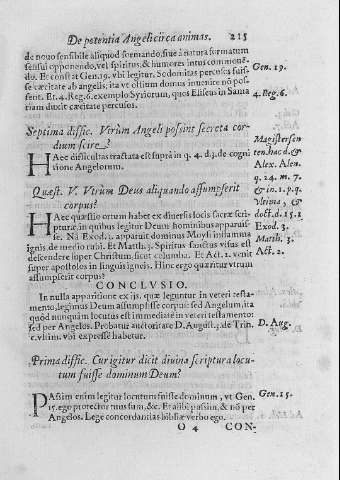 De potentia Angeli circa animas. 215
de nouo sensibile aliquod formando, siue à natura formatum
sensui opponendo, vel spiritus, & humores intus commouē-
do. Et constat Gen. 19. vbi legitur, Sodomitas percussos fuis-
se cæcitate ab angelis, ita vt ostium domus inuenire nō pos-
sent. Et. 4. Reg. 6. exemplo Syriorum, quos Eliseus in Sama
riam duxit cæcitate percussos.
Gen. 19.
4. Reg. 6.
Septima diffic. Vtrùm Angeli possint secreta cor-
dium scire?
HAec difficultas tractata est suprà in q. 4. d. 3. de cogni
tione Angelorum.
Quæst. V. Vtrùm Deus aliquando assumpserit
corpus?
HAec quæstio ortum habet ex diuersis locis sacræ scri-
pturæ in quibus legitur Deum hominibus apparuis-
se. Nā Exod. 3. apparuit dominus Moysi in flamma
ignis de medio rubi. Et Matth. 3. Spiritus sanctus visus est
descendere super Christum sicut columba. Et Act. 2. venit
super apostolos in linguis igneis. Hinc ergo quæritur vtrum
assumpserit corpus?
Magister sen
ten. hac d. &
Alex. Alen.
q. 24. m. 7.
& in 1. p. q.
doct. d. 15. 1
Exod. 3.
Matth. 3.
Act. 2.
CONCLVSIO.
In nulla apparitione ex ijs, quæ leguntur in veteri testa-
mento, legimus Deum assumpsisse corpus: sed Angelum, ita
quòd nunquàm locutus est immediatè in veteri testamento:
sed per Angelos. Probatur auctoritate D. August. 3. de Trin.
c. vltim. vbi expressè habetur.
D. Aug.
Prima diffic. Cur igitur dicit diuina scriptura locu-
tum fuisse dominum Deum?
PAssim enim legitur locutum fuisse dominum, vt Gen.
15. ego protector tuus sum, &c. Et alibi passim, & nō per
Angelos. Lege concordantias bibliæ verbo ego.
Gen. 15.
O 4 CON-